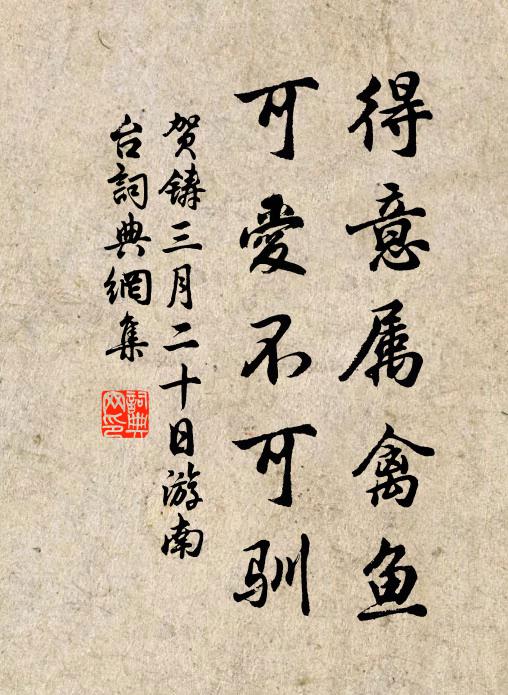 得意属禽鱼
可愛不可驯
贺鑄三月二十日游南
台詞典網集
詞典
网印